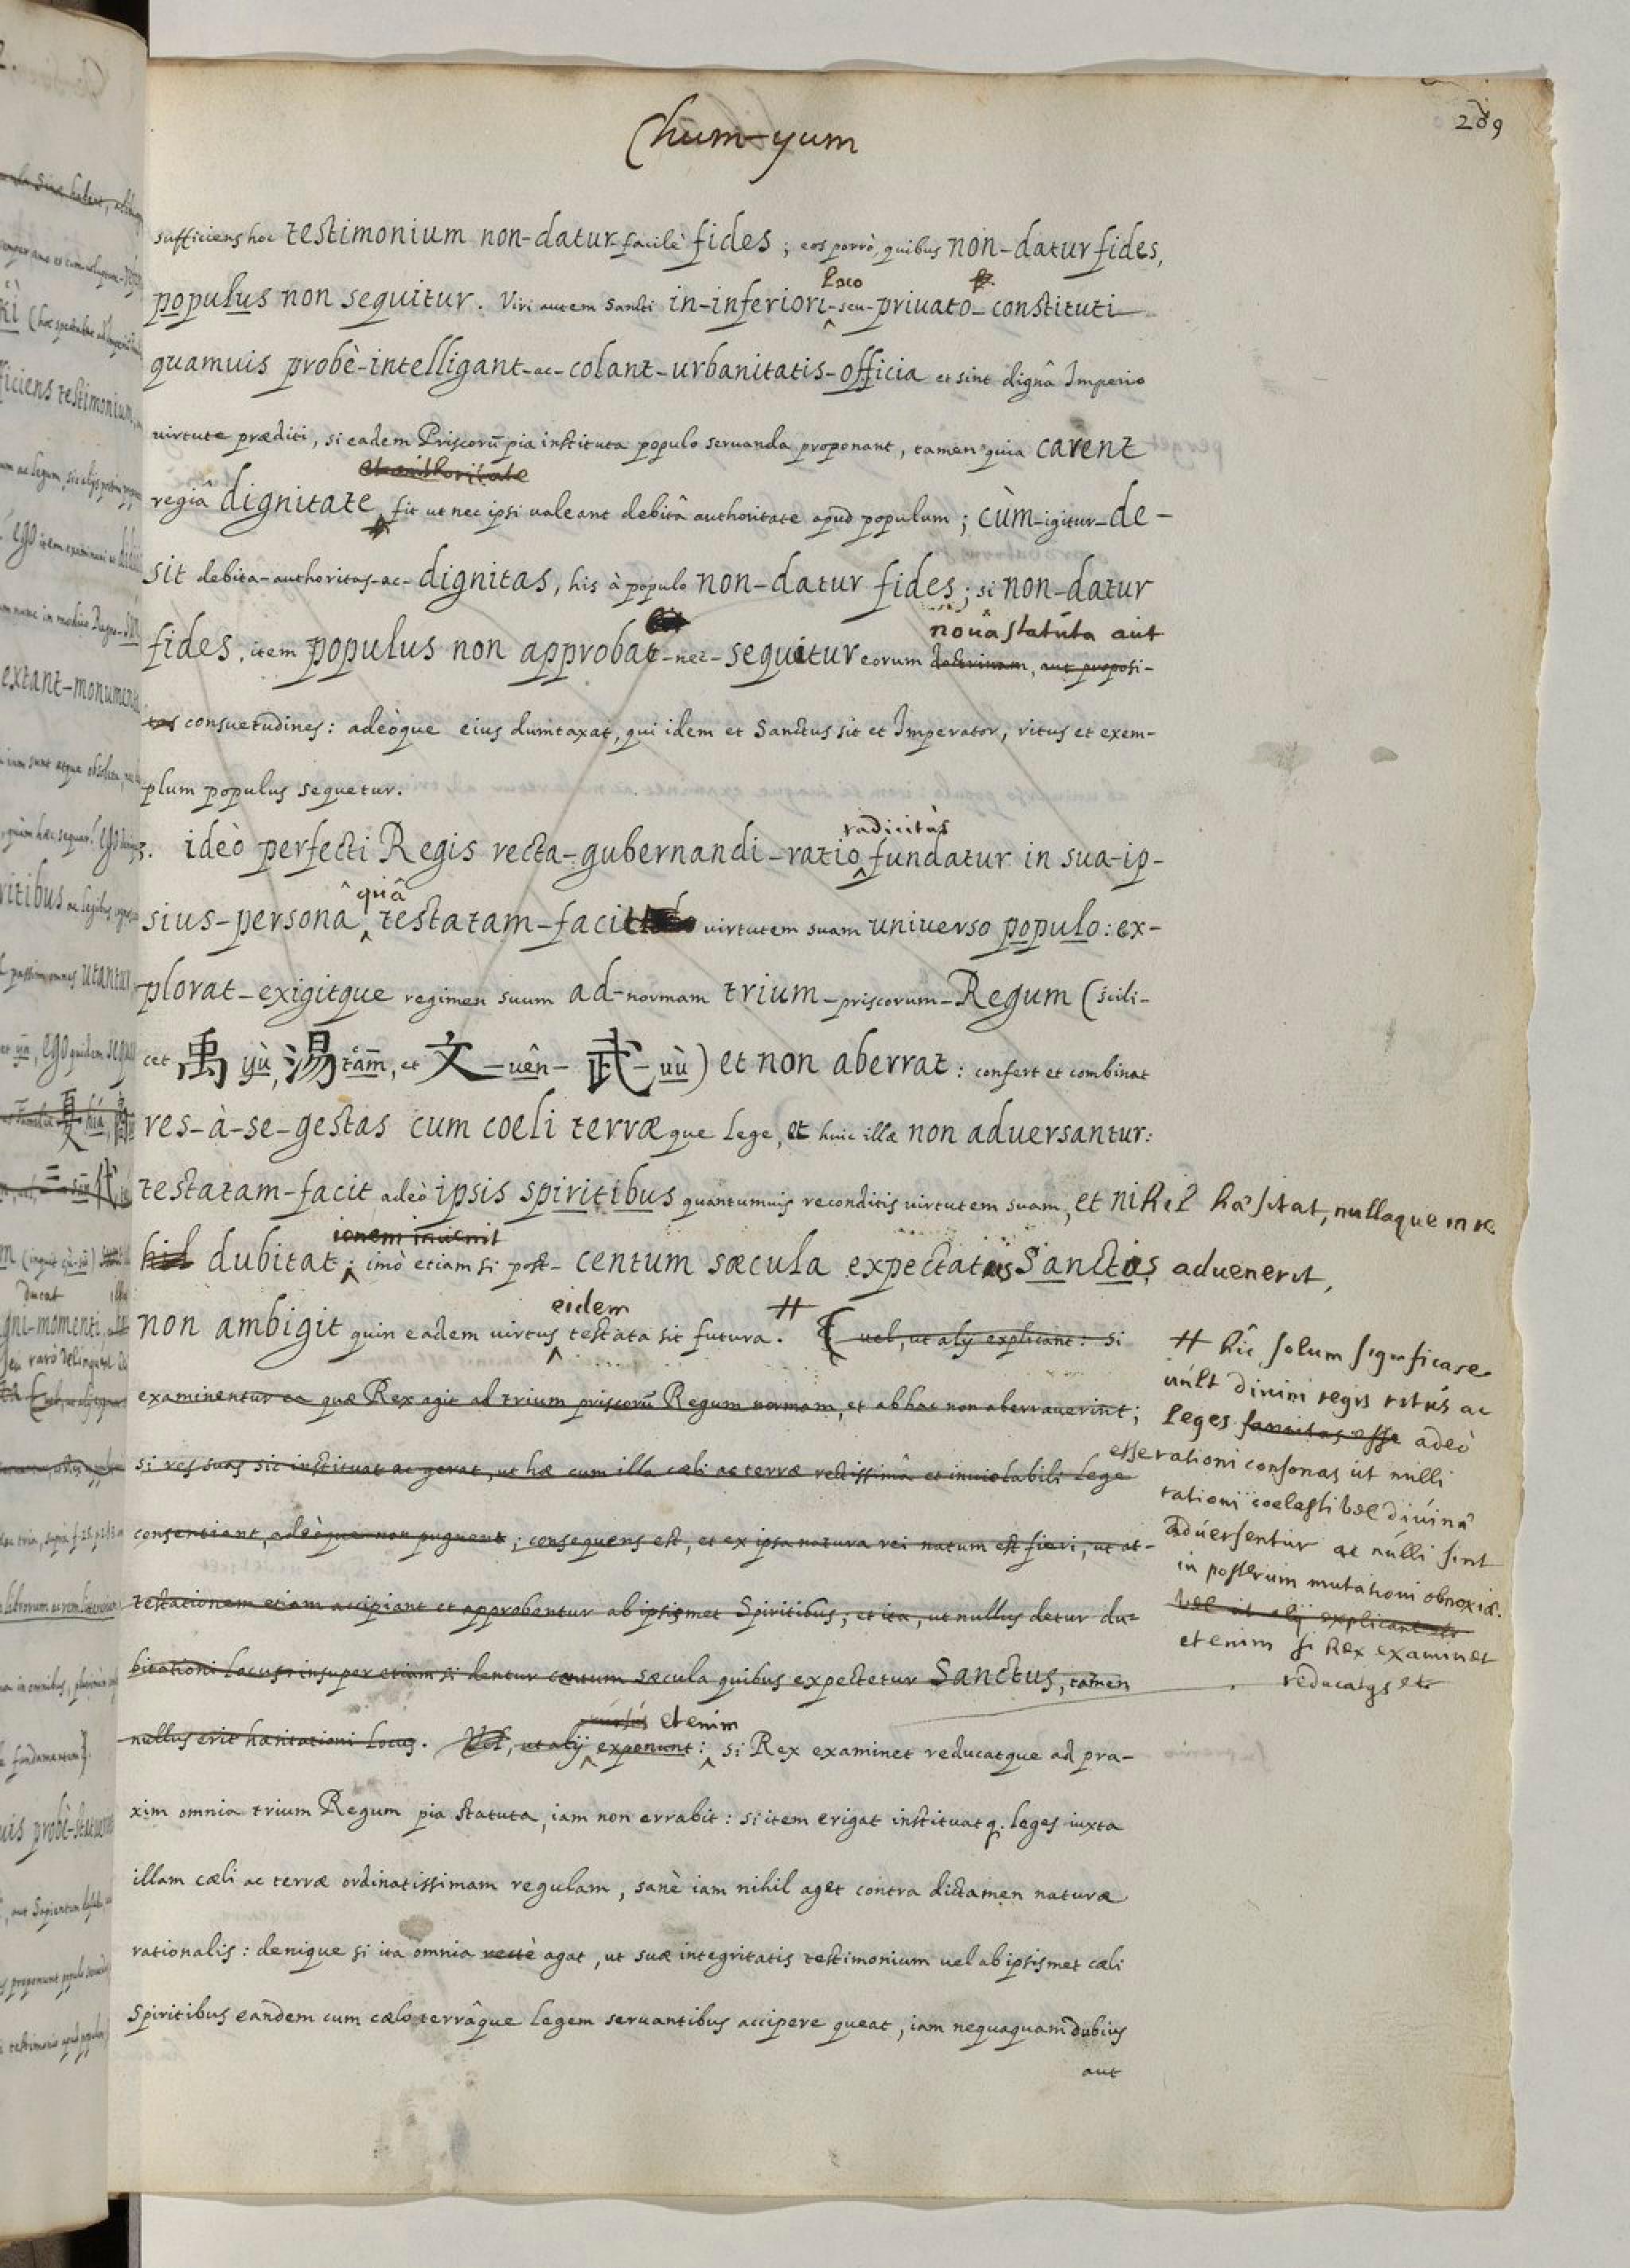 Chum-yum
289
sufficiens hoc testimonium non-datur-facilè fides; eos porrò, quibus non-datur fides,
loco
populus non sequitur. Viri autem Sancti in-inferiori-seu-priuato-constituti
quamuis probè-intelligant-ac-colant-urbanitatis-officia et sint dignâ Imperio
uirtute præditi, si eadem Priscorũ pia instituta populo seruanda proponant, tamen quia carent
et authoritate
regiâ dignitate, fit ut nec ipsi ualeant debitâ authoritate apud populum; cùm-igitur-de-
sit debita-authoritas-ac-dignitas, his à populo non-datur fides; si non-datur
noua statuta aut
fides, item populus non approbat-nec-sequitur eorum doctrinam, aut proposi-
tas consuetudines: adeòque eius dumtaxat, qui idem et Sanctus sit et Imperator, ritus et exem-
plum populus sequetur.
3. ideò perfecti Regis recta-gubernandi-ratio fundatur in sua-ip-
radicitùs
quâ
sius-persona, testatam-facit uirtutem suam uniuerso populo: ex-
plorat-exigitque regimen suum ad-normam trium-priscorum-Regum (scili-
cet 禹 yù, 湯 tām, et 文-uên-武-uù) et non aberrat: confert et combinat
res-à-se-gestas cum coeli terræque Lege, et huic illæ non aduersantur:
testatam-facit adeò ipsis spiritibus quantumuis reconditis uirtutem suam, et nihil hæsitat, nullaque in re
ionem inuenit
hil dubitat; imò etiam si post-centum sæcula expectatus Sanctus aduenerit,
eidem #
non ambigit quin eadem uirtus testata sit futura. (uel, ut alij explicant: si
examinentur ea quæ Rex agit ad trium priscorũ Regum normam, et ab hac non aberrauerint;
si res suas sic instituat ac gerat, ut hæ cum illa cæli ac terræ rectissimâ et inuiolabili Lege
consentiant, adeòque non pugnent; consequens est, et ex ipsa natura rei natum est fieri, ut at-
testationem etiam accipiant et approbentur ab ipsismet Spiritibus; et ita, ut nullus detur du-
bitationi Locus: insuper etiam si dentur centum sæcula quibus expectetur Sanctus, tamen
etenim
nullus erit hæsitationi Locus. Vel, ut alij exponunt: si Rex examinet reducatque ad pra-
xim omnia trium Regum pia statuta, iam non errabit: si item erigat instituatq. leges iuxta
illam cæli ac terræ ordinatissimam regulam, sanè iam nihil aget contra dictamen naturæ
rationalis: denique si ita omnia rectè agat, ut suæ integritatis testimonium uel ab ipsismet cæli
Spiritibus eandem cum cælo terrâque legem seruantibus accipere queat, iam nequaquam dubius
aut
# hîc solum significare
uult diuini regis ritus ac
leges sancitas esse adeò
esse rationi consonas ut nulli
rationi coelesti vel diuinæ
aduersentur ac nulli sint
in posterum mutationi obnoxiæ.
vel ut alij explicant
etenim si Rex examinet
reducatqs etc